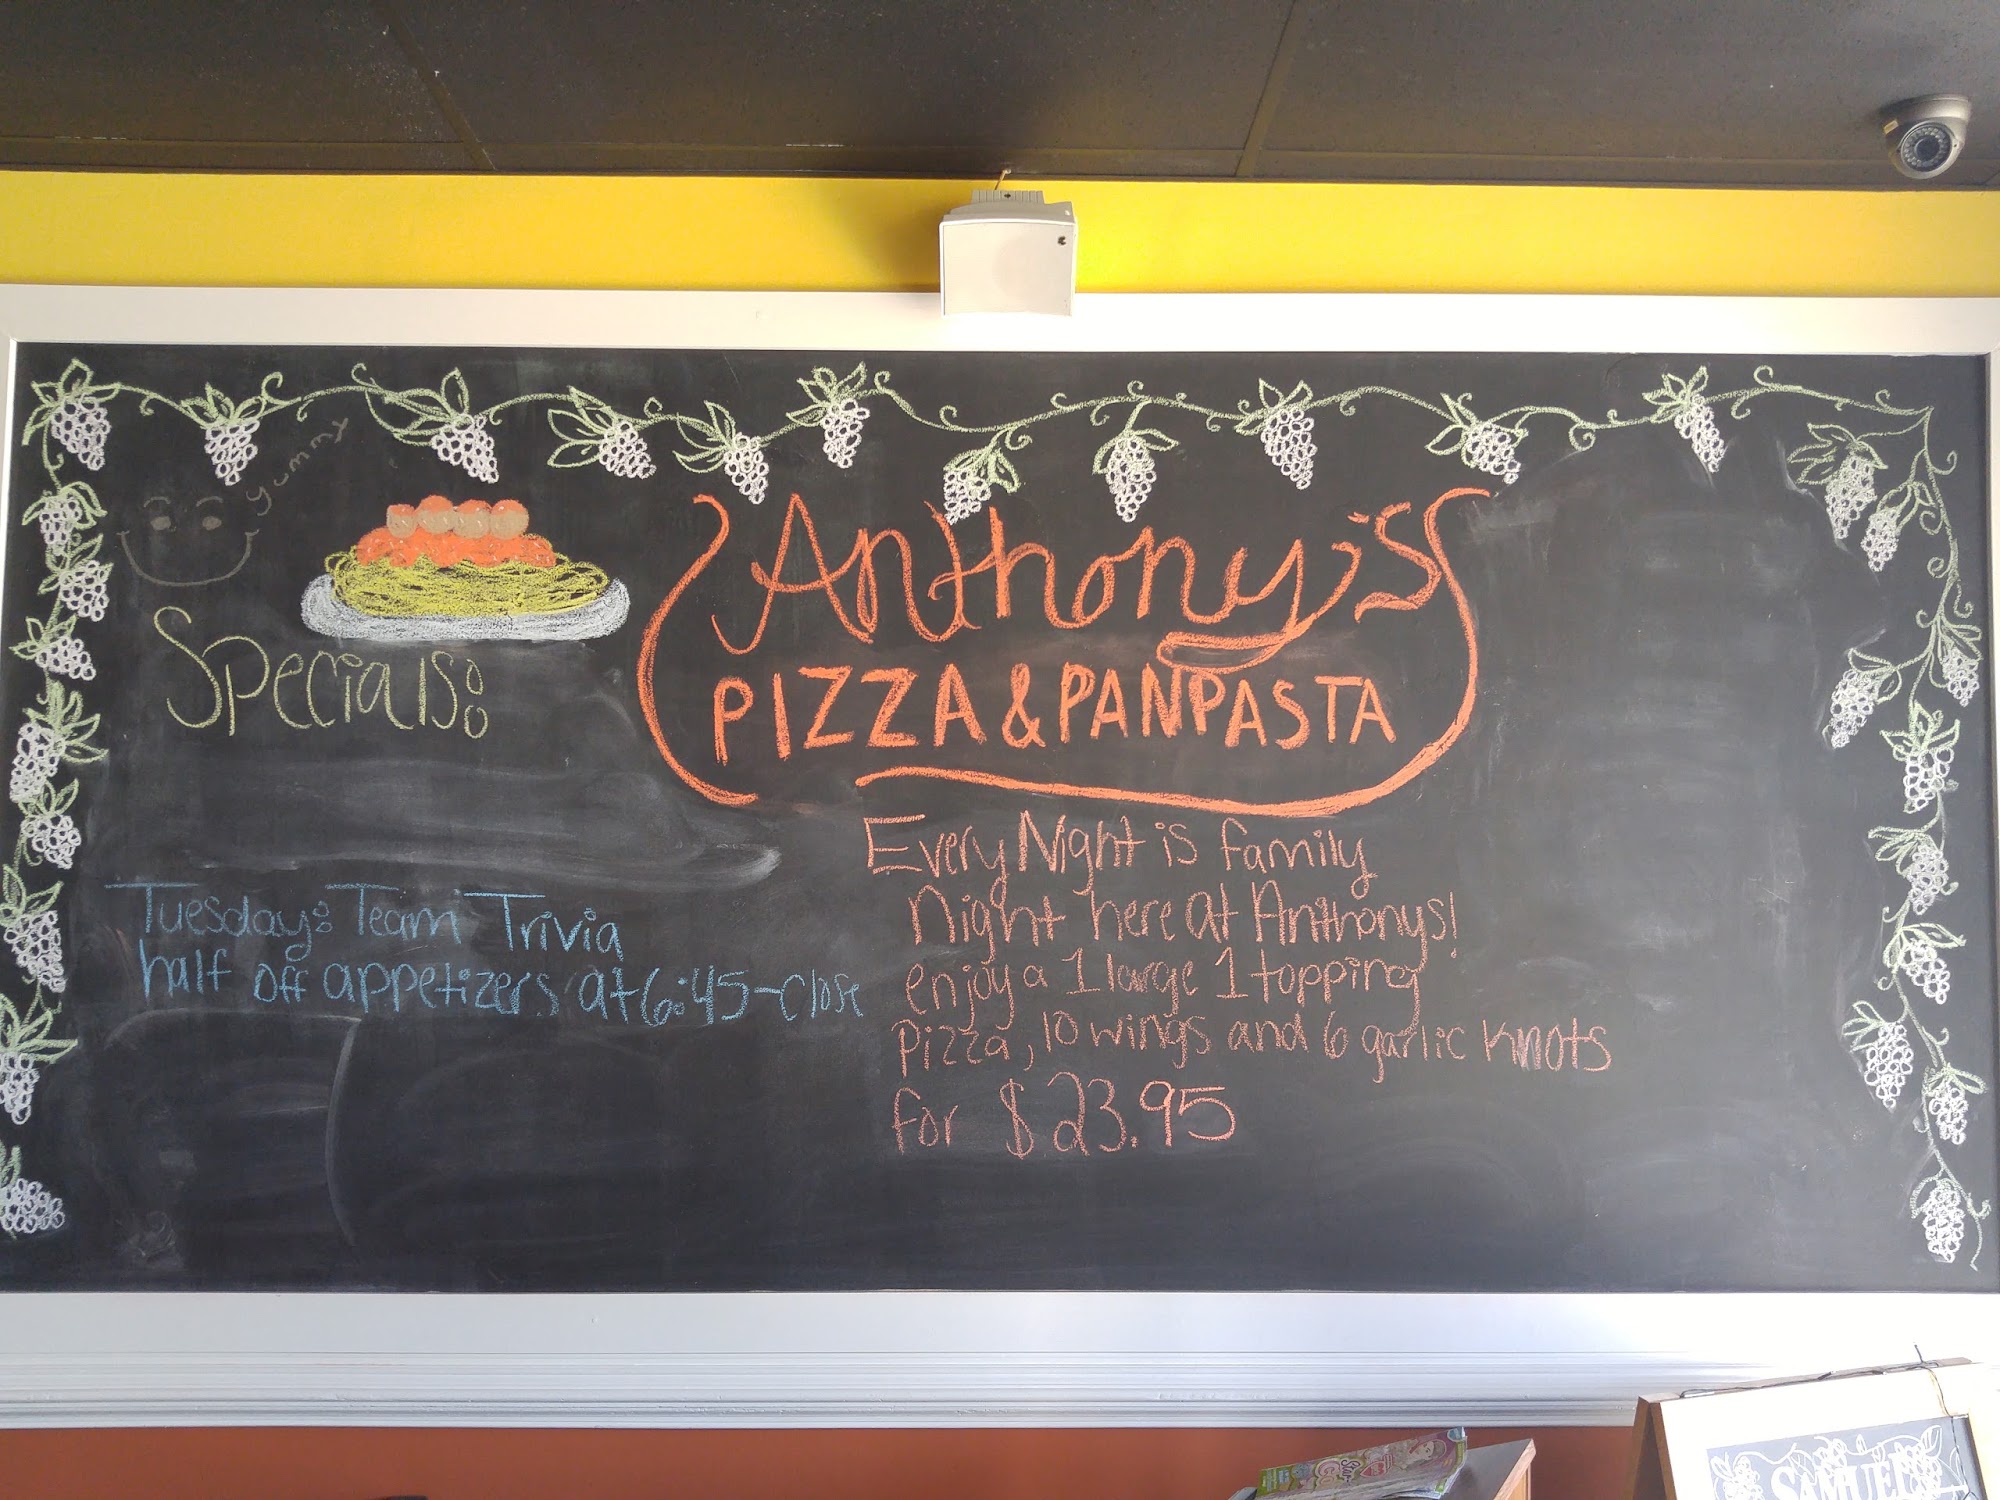 yummy
Specials:
Anthony's
PIZZA & PANPASTA
Tuesday: Team Trivia
half off appetizers at 6:45-close
Every Night is family
Night here at Anthonys!
enjoy a 1 large 1 topping
pizza, 10 wings and 6 garlic knots
for $23.95
SAMUEL